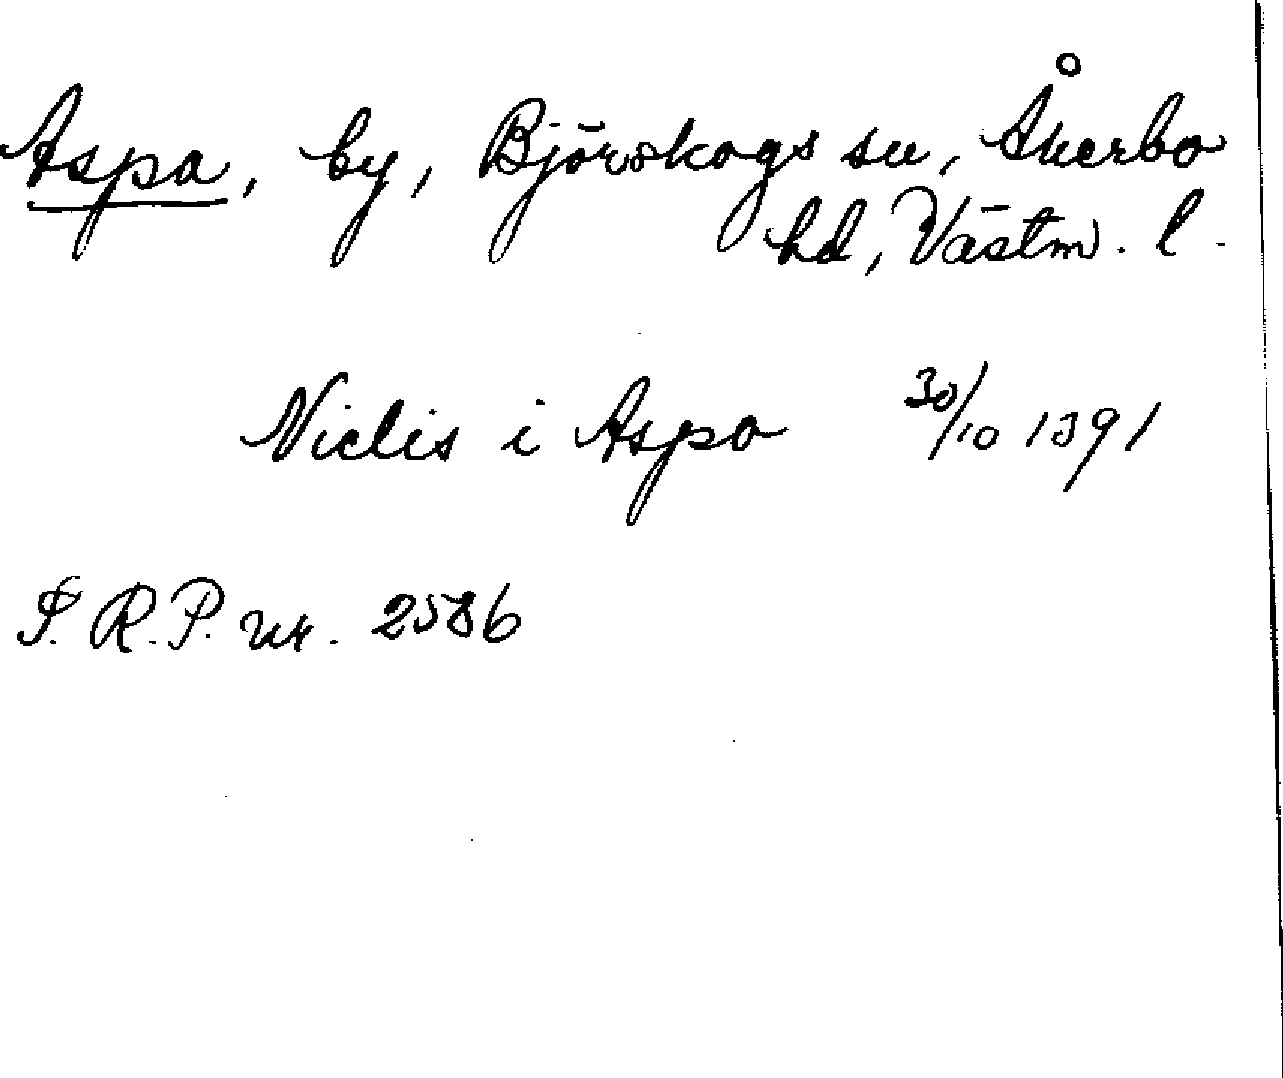 Aspa, by, Björskogs sn, Åkerbo
hd, Västm. l.
Niclis i Aspo 30/10 1391
S.R.P. nr. 2586